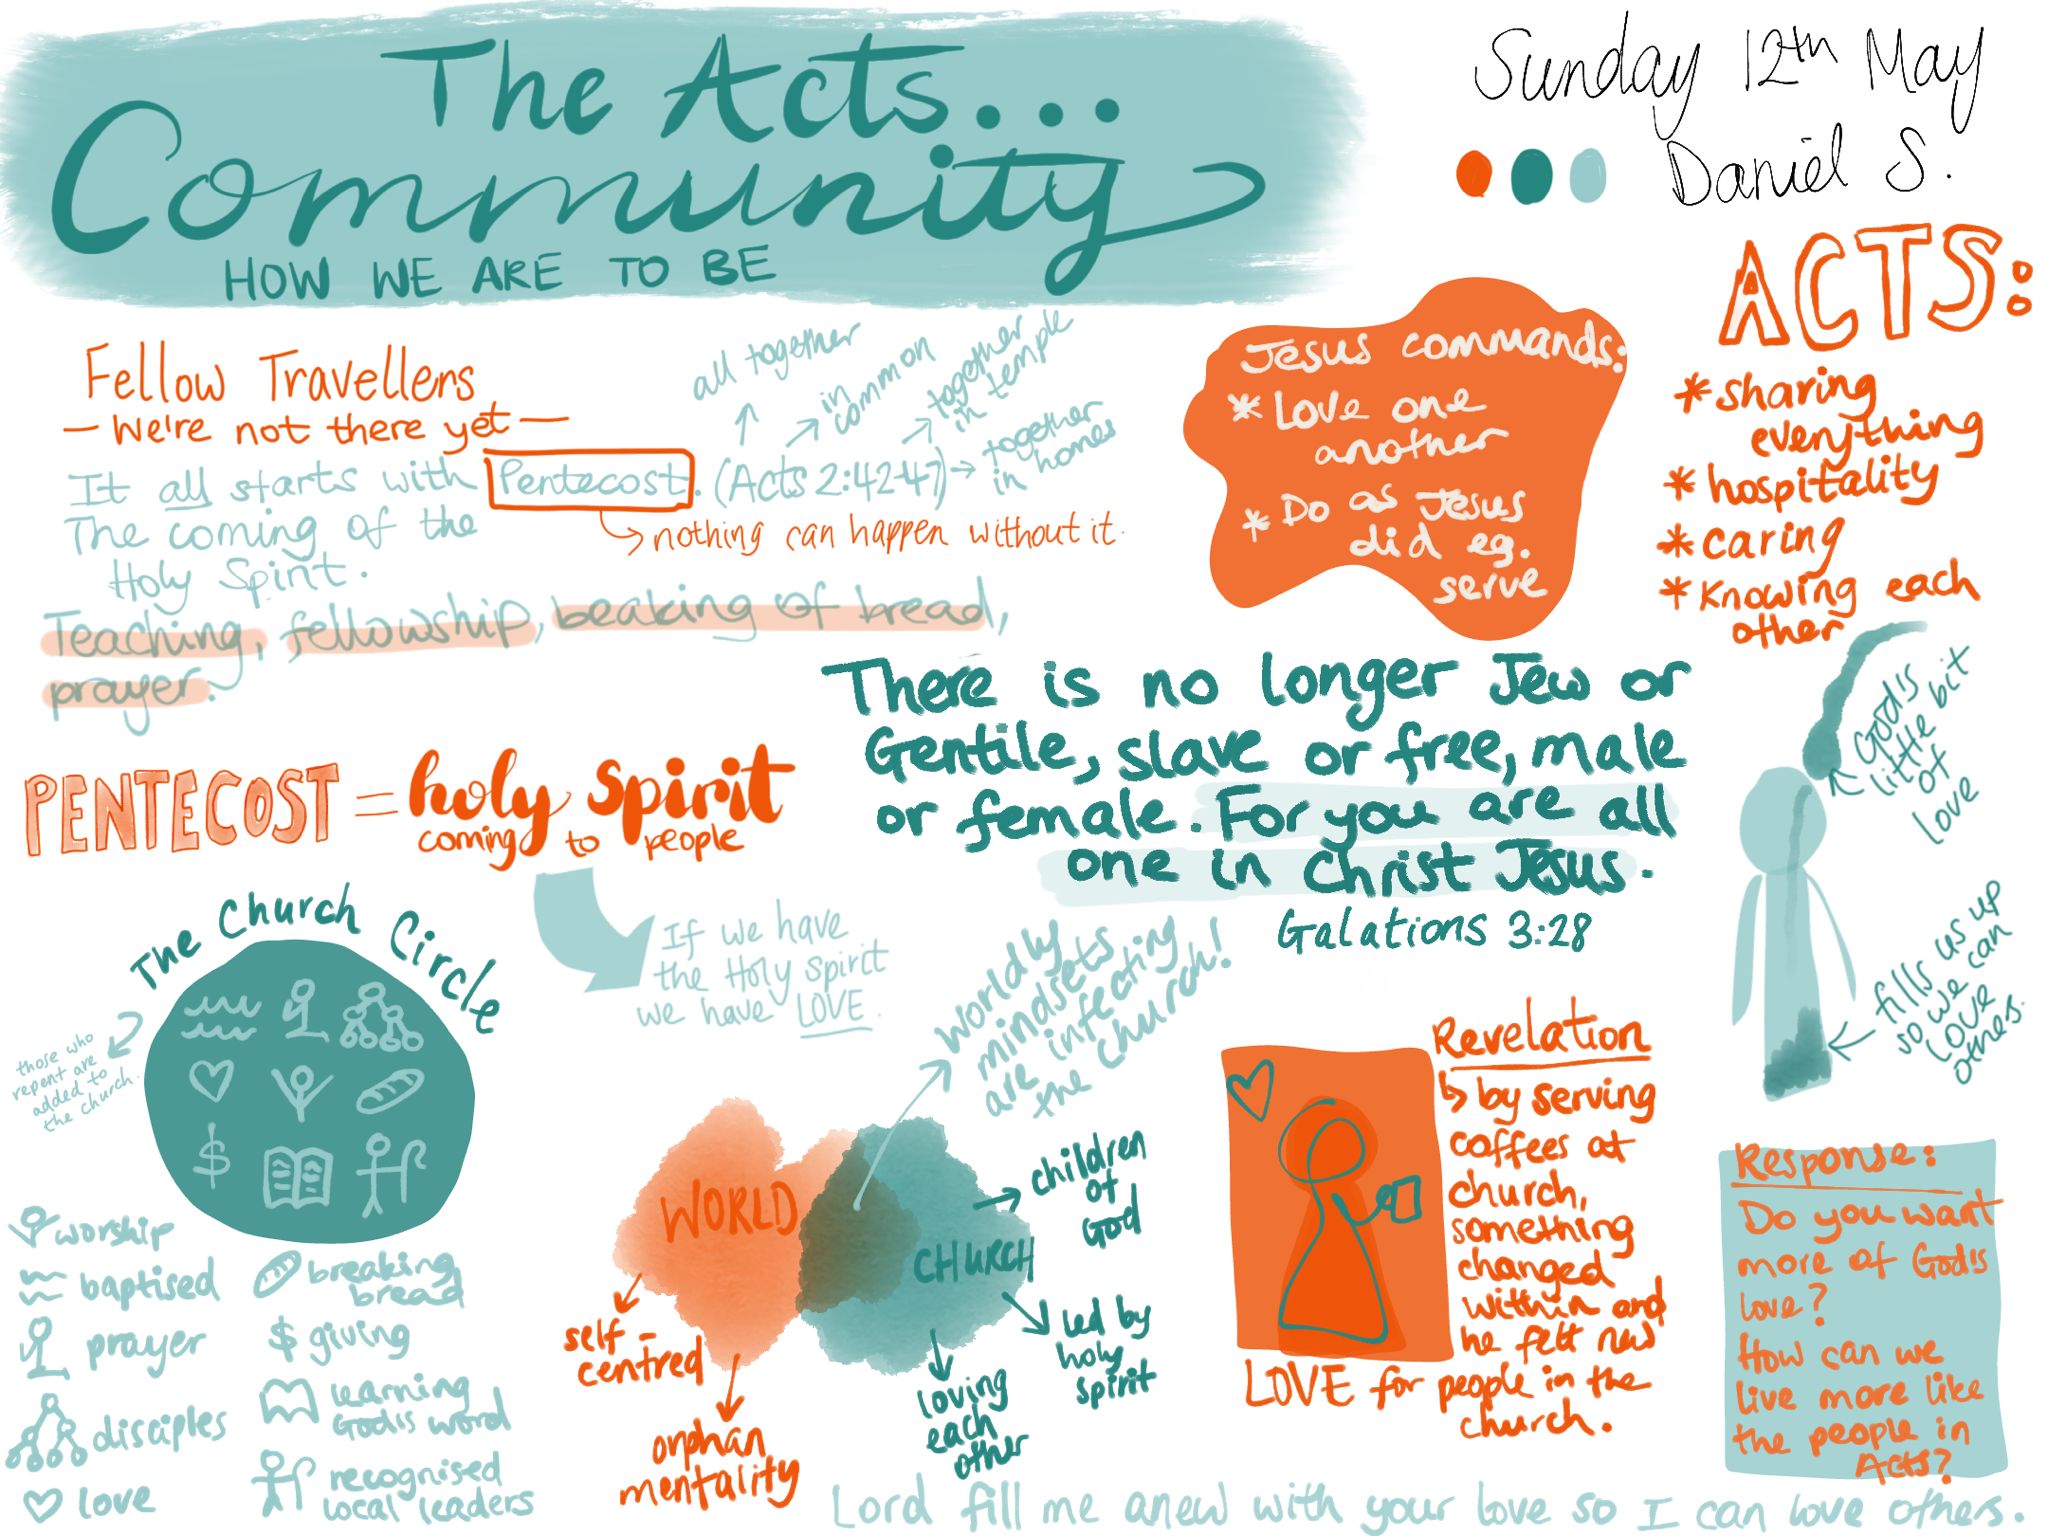 The Acts...
Community
HOW WE ARE TO BE
Sunday 12th May
Daniel S.
Fellow Travellers
- We're not there yet -
It all starts with Pentecost. (Acts 2:42-47)
The coming of the
Holy Spirit.
all together
in
common
together
in temple
together
in homes
nothing can happen without it.
Teaching, fellowship, beaking of bread,
prayer.
Jesus commands:
* Love one
another
* Do as Jesus
did eg.
serve
ACTS:
* sharing
everything
* hospitality
* caring
* Knowing each
other
PENTECOST = holy spirit
coming to people
If we have
the Holy Spirit
we have LOVE.
There is no longer Jew or
Gentile, slave or free, male
or female. For you are all
one in Christ Jesus.
Galations 3:28
God's
little bit
of
love
fills us up
so we can
love
others.
The Church Circle
those who
repent are
added to
the church.
$
worship
baptised
prayer
disciples
love
breaking
bread
$ giving
learning
God's word
recognised
local leaders
WORLD
CHURCH
worldly
mindsets
are infecting
the church!
self-
centred
orphan
mentality
children
of
God
led by
holy
spirit
loving
each
other
Revelation
by serving
coffees at
church,
something
changed
within and
he felt new
LOVE for people in the
church.
Response:
Do you want
more of God's
love?
How can we
live more like
the people in
Acts?
Lord fill me anew with your love so I can love others.